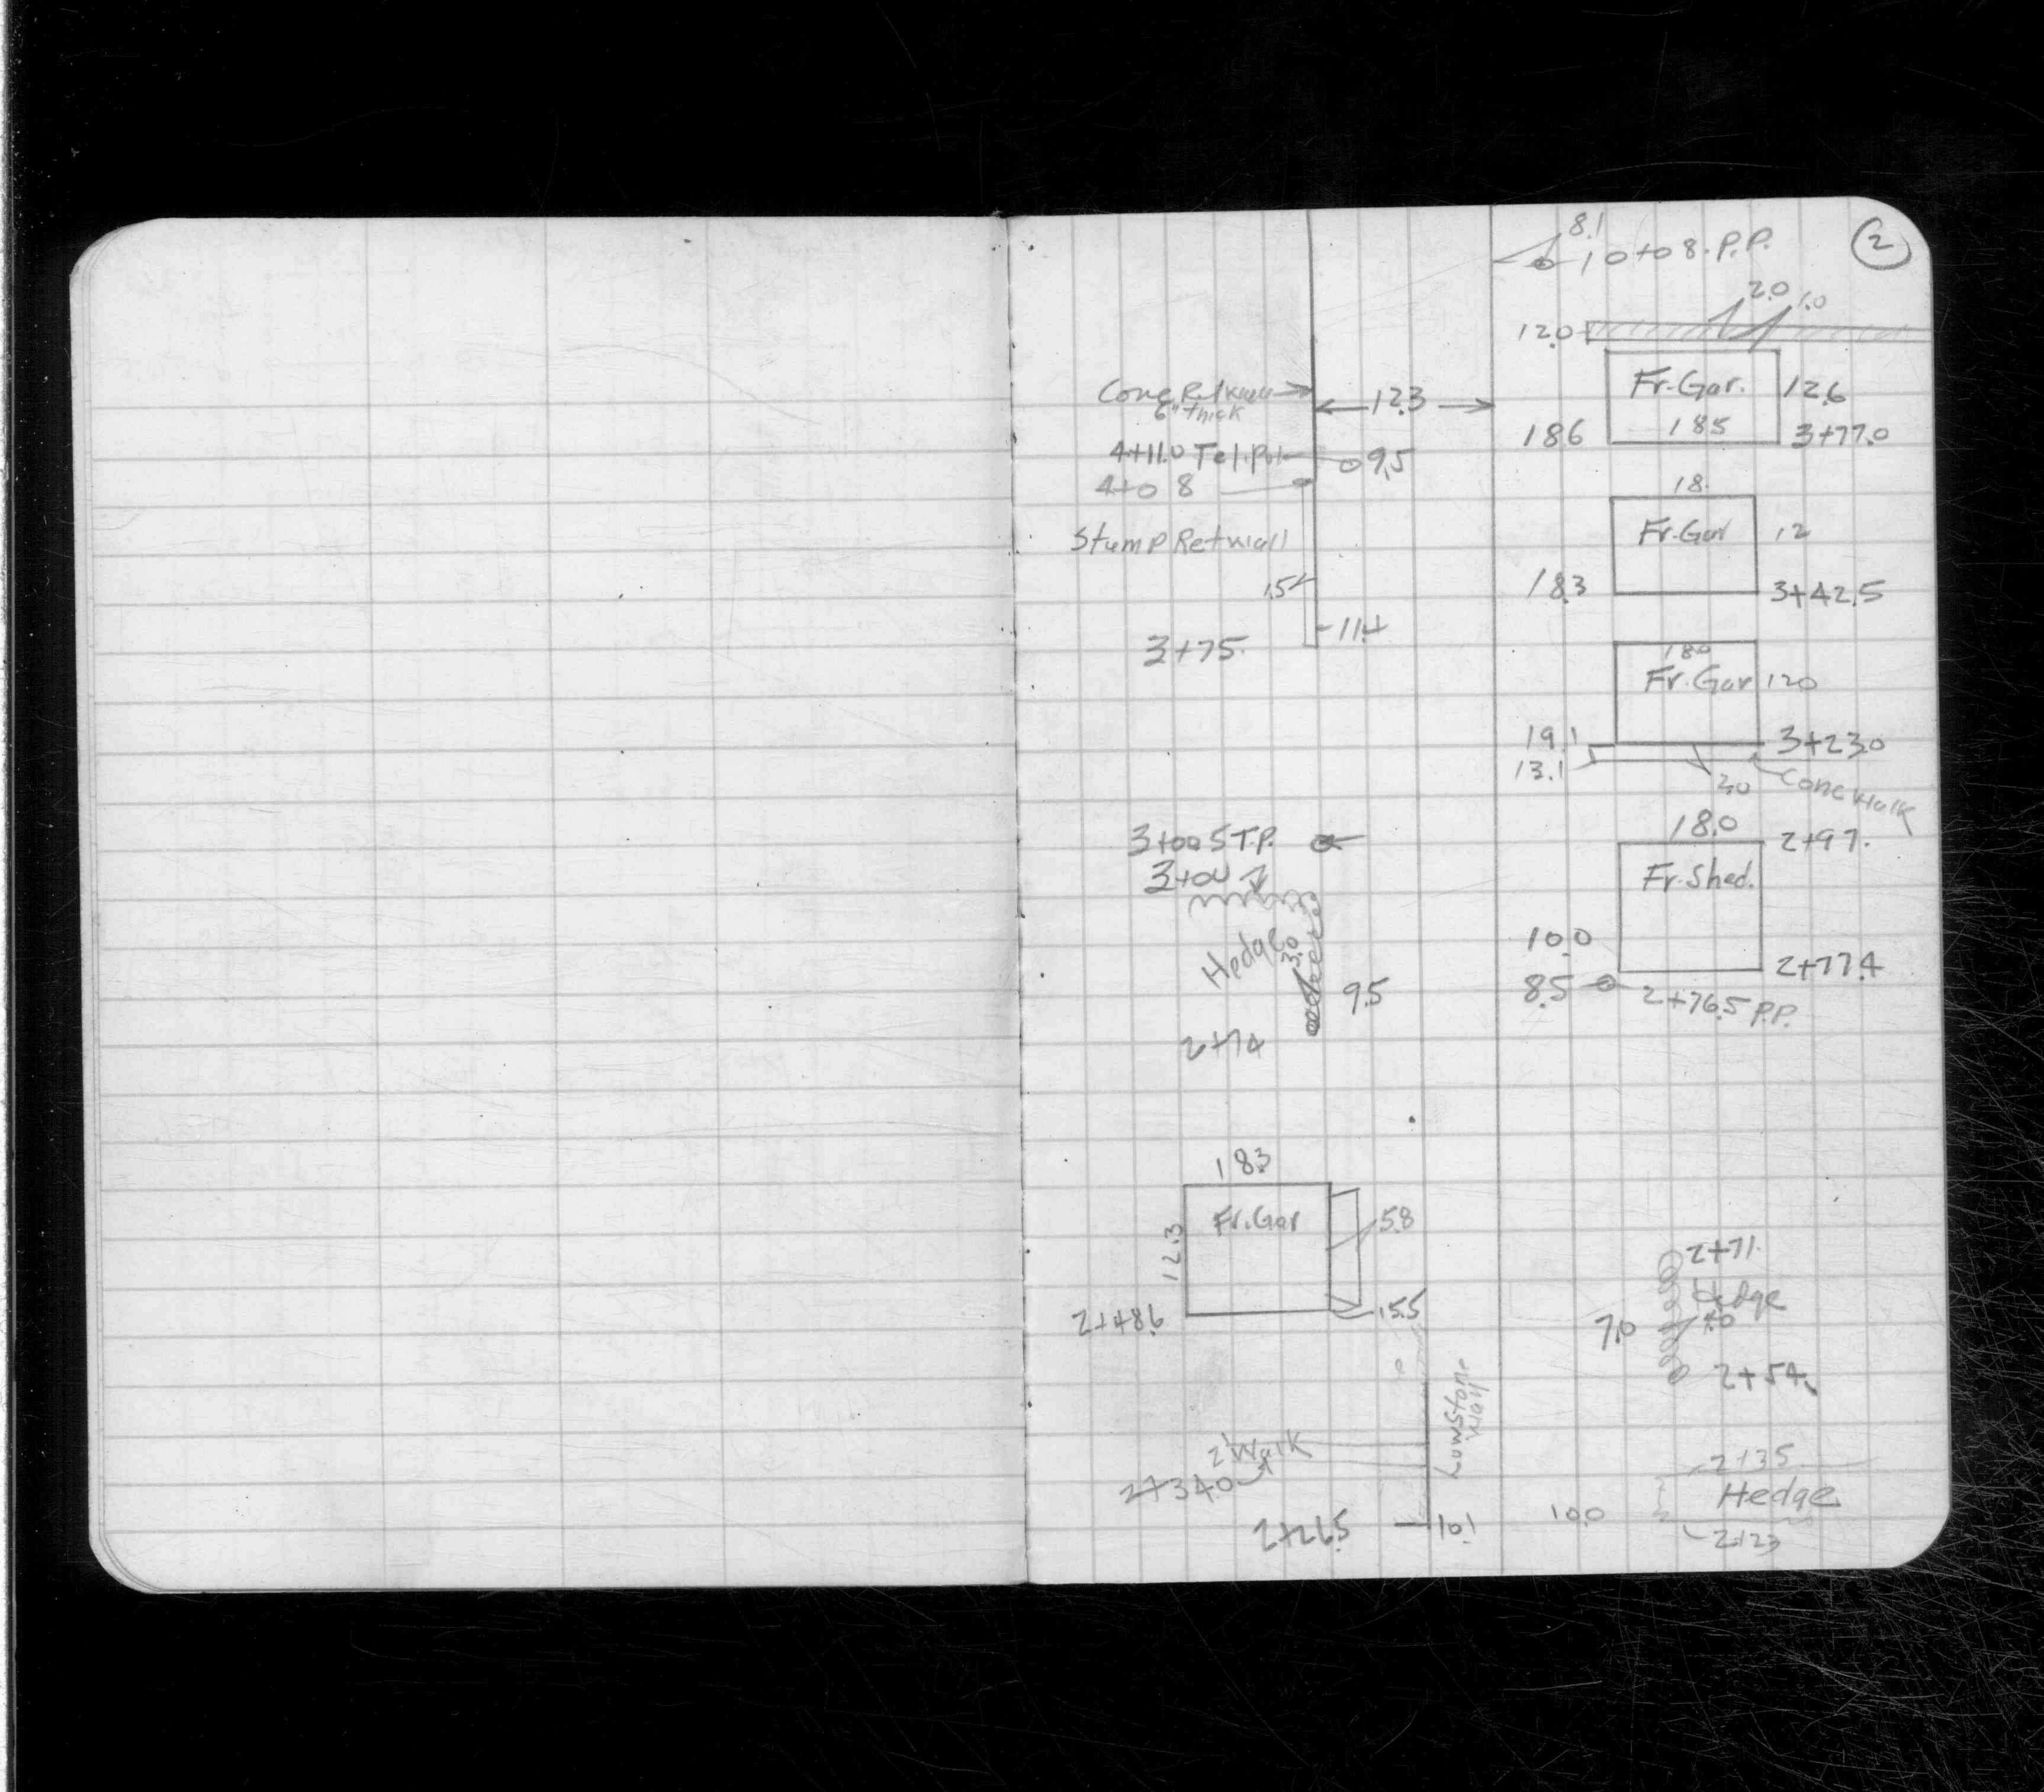 2
8.1
10+08. P.P.
2.0 1.0
12.0
Conc Retwall
6" thick
12.3
Fr. Gar.
12.6
18.6
18.5
3+77.0
4+11.0 Tel. Pol
9.5
4+08
18.
Stump Retwall
Fr. Gar
12
1.5
18.3
3+42.5
11.4
3+75.
18.0
Fr. Gar
12.0
19.1
3+23.0
13.1
3.0
Conc walk
3+00.5 T.P.
18.0
2+97.
3+00
Fr. Shed.
Hedge
3.0
10.0
2+77.4
9.5
8.5
2+76.5 P.P.
2+74
18.3
Fr. Gar
5.8
12.3
2+71.
Hedge
15.5
2+48.6
7.0
2+54.
Low Stone
wall
2' Walk
2+34.0
2+35.
Hedge
2+26.5
10.1
10.0
2+23